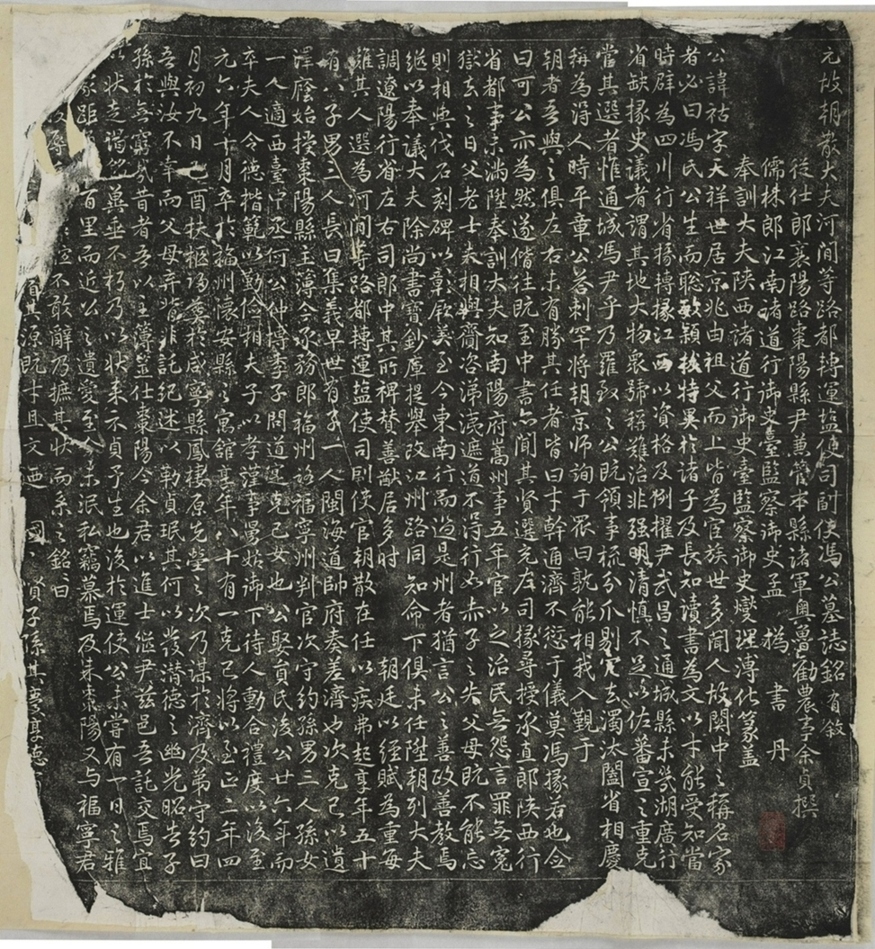 元故朝散大夫河間等路都轉運盐使司副使馮公墓誌銘有敘
從仕郎襄陽路棗陽縣尹兼管本縣諸軍奧魯勸農事余貞撰
儒林郎江南諸道行御史臺監察御史孟㮣書丹
奉訓大夫陝西諸道行御史臺監察御史燮理溥化篆盖
公諱祜字天祥世居京兆由祖父而上皆為宦族世多聞人故関中之稱名家
者必曰馮氏公生而聪敏穎拔特異於諸子及長知讀書為文以才能受知當
時辟為四川行省掾轉掾江西以資格及例擢尹武昌之通城縣未幾湖廣行
省缺掾史議者謂其地大物衆號稱難治非强明清慎不足以佐蕃宣之重克
當其選者惟通城馮尹乎乃羅致之公既領事梳分爪剔宂去濁汰闔省相慶
稱為得人時平章公荅剌罕將朝京師詢于衆曰孰能相我入覲于
朝者吾與之俱左右未有勝其任者皆曰才幹通濟不愆于儀莫馮掾若也公
曰可公亦為然遂偕往既至中書亦聞其賢選充左司掾尋授承直郎陝西行
省都事未滿陞奉訓大夫知南陽府嵩州事五年官以之治民無怨言罪無寃
獄去之日父老士夫相與齎咨涕洟遮道不得行如赤子之失父母既不能忘
則相與伐石刻碑以彰厥美至今東南行而造是州者猶言公之善政善教焉
继以奉議大夫除尚書寳鈔庫提舉改江州路同知命下俱未任陞朝列大夫
調遼陽行省左右司郎中其所裨賛善猷居多時 朝廷以經賦為重每
難其人選為河間等路都轉運盐使司副使官朝散在任以疾弗起享年五十
有八子男三人長曰集義早世有子一人閩海道帥府奏差濟也次克己以遺
澤廕始授棗陽縣主簿今承務郎福州路福寧州判官次守約孫男三人孫女
一人適西臺中丞何公仲博季子問道迺克己女也公娶貟氏後公廿六年而
卒夫人令德楷範以勤俭相夫子以孝謹事舅姑御下待人動合禮度以後至
元六年十月卒於福州懷安縣之寓舘享年八十有一克己將以至正二年四
月初九日乙酉扶柩歸葬於咸寧縣鳳棲原先塋之次乃謀於濟及弟守約曰
吾與汝不幸而父母弃背非託紀述以勒貞珉其何以發潜德之幽光昭告子
孫於無窮氣昔者吾以主簿筮仕棗陽今余君以進士継尹兹邑吾託交焉宜
以狀走謁銘葬垂不朽乃以狀来示貞予生也後於運使公未嘗有一日之雅
家距百里而近公之遺愛至今未泯私竊慕焉及来棗陽又与福寧君
不敢辭乃摭其狀而系之銘曰
其源既才且文迺國 貽子孫其慶